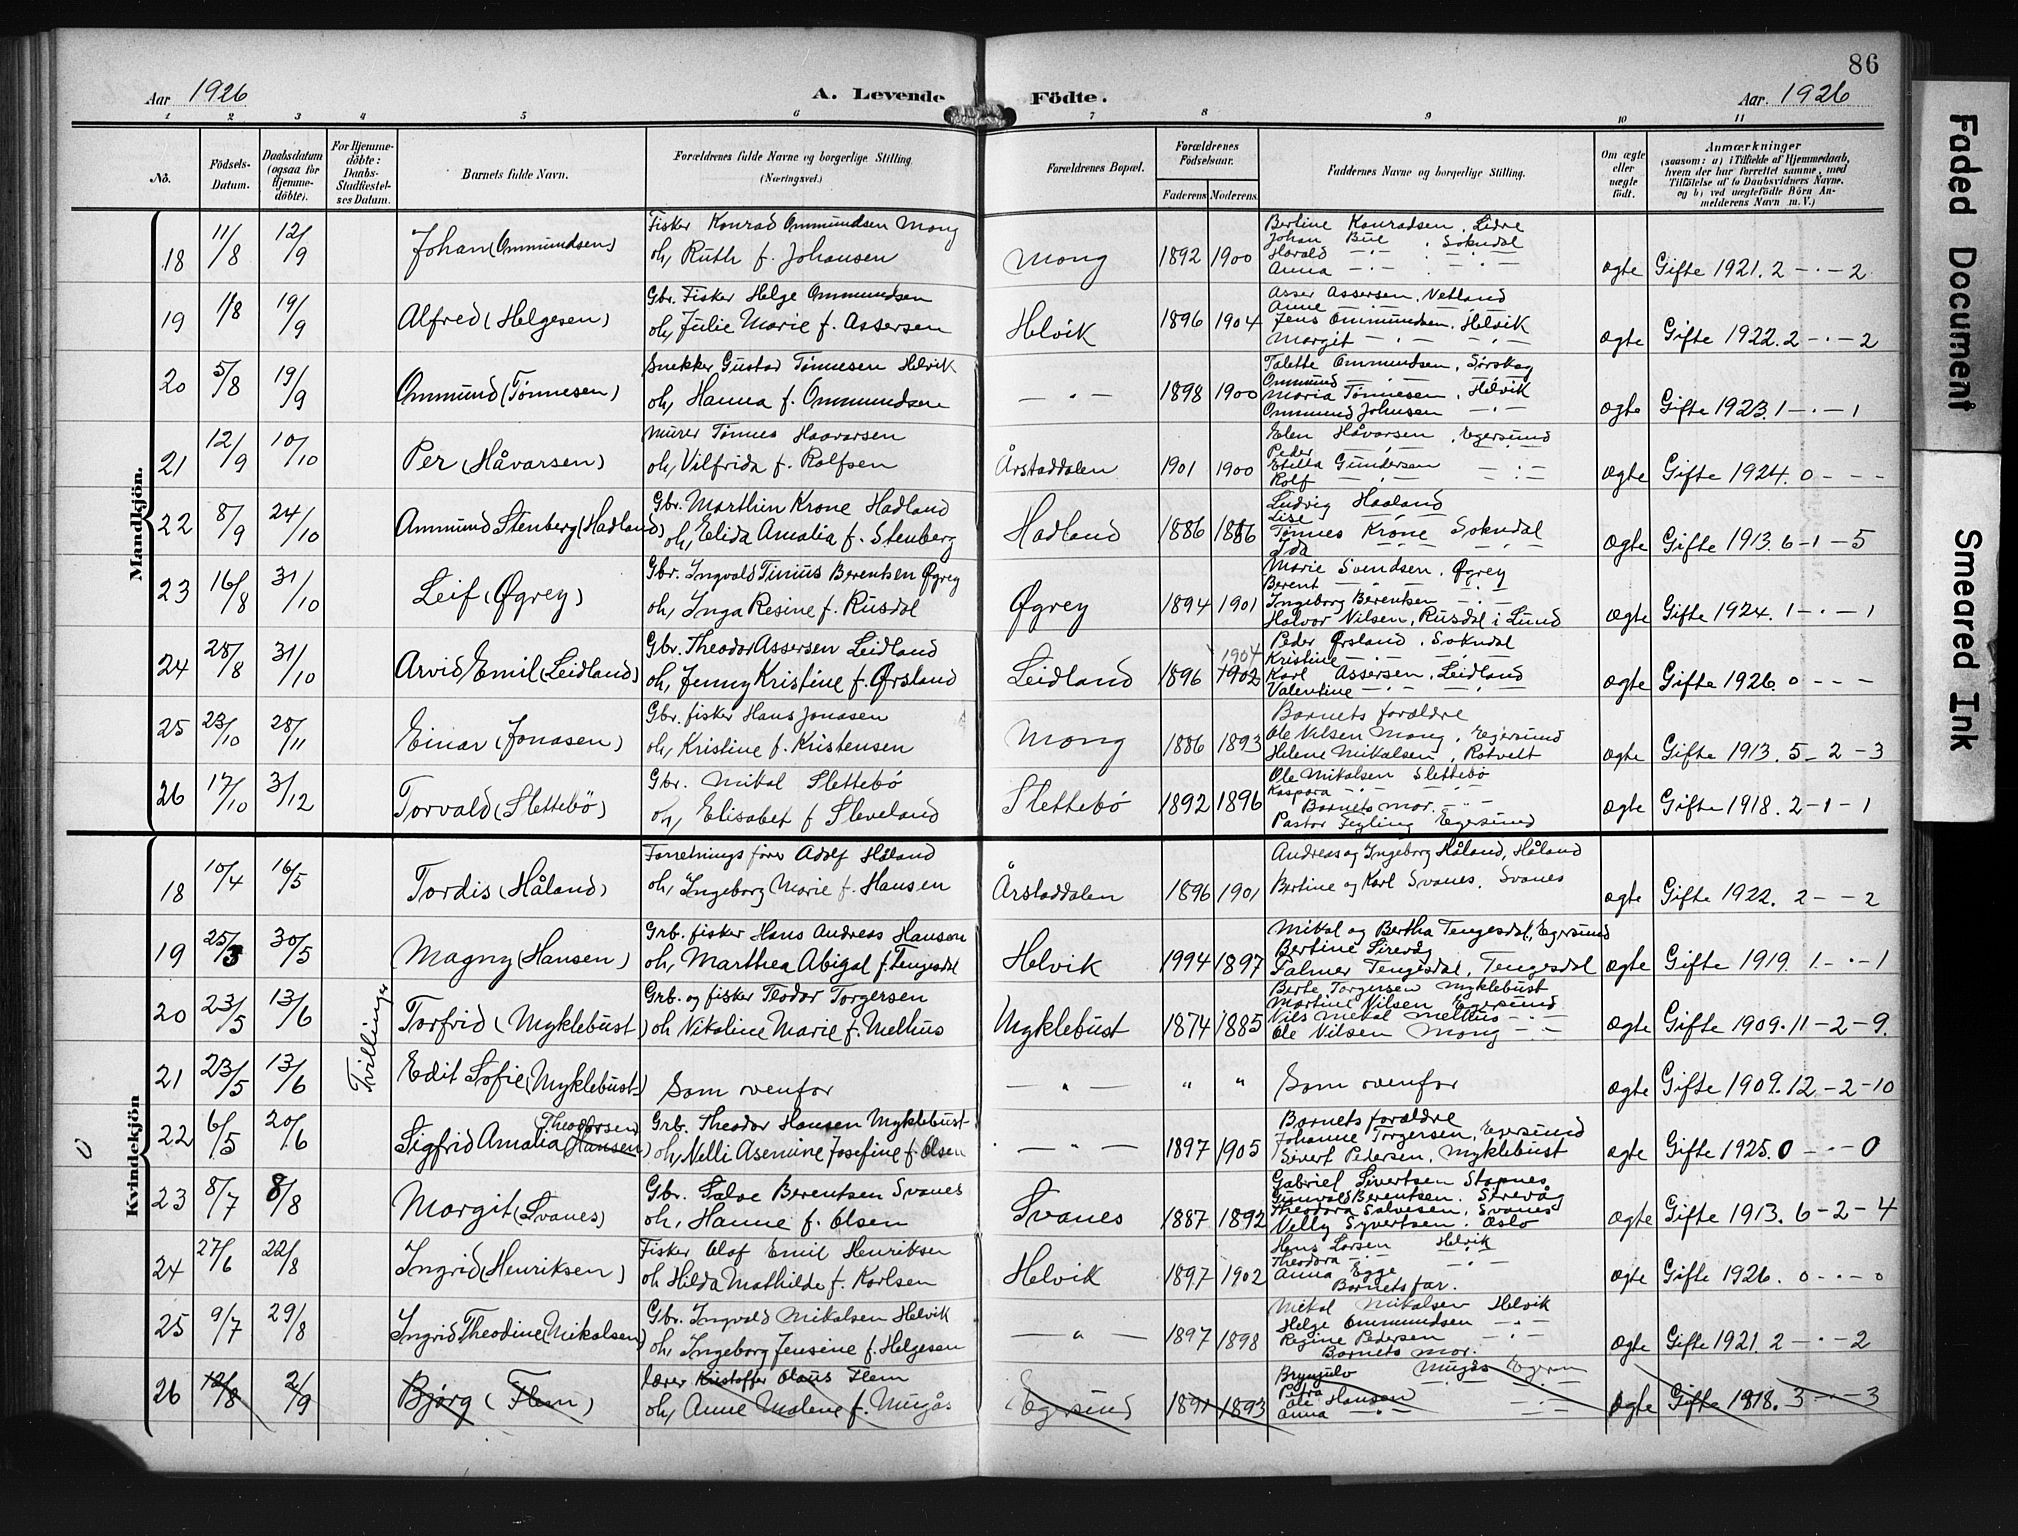 86
Aar 1926
A. Levende Födte.
Aar. 1926
1 2 3 4 5 6 7 8 9 10 11
No.
Födsels-Datum.
Daabsdatum (ogsaa for Hjemme-döbte).
For Hjemme-döbte: Daabs-Stadfæstel-ses Datum.
Barnets fulde Navn.
Forældrenes fulde Navne og borgerlige Stilling. (Næringsvei.)
Forældrenes Bopæl.
Forældrenes Födselsaar.
Faderens Moderens
Faddernes Navne og borgerlige Stilling.
Om ægte eller uægte födt.
Anmærkninger
(saasom: a) i Tilfælde af Hjemmedaab, hvem der har forrettet samme, med Tilföielse af to Daabsvidners Navne, og b) ved uægtefödte Börn An-melderens Navn m. V.)
Mandkjön.
18 11/8 12/9 Johan (Ommundsen)
Fisker Konrad Ommundsen Mong
oh, Ruth f. Johansen
Mong 1892 1900
Berline Konradsen, Lidre
Johan Bue . Sokndal
Harald -"- . -"-
Anna -"- . -"-
ægte Gifte 1921. 2 - · - 2
19 1/8 19/9 Alfred (Helgesen)
Gbr. Fisker Helge Ommundsen
oh, Julie Marie f. Assersen
Helvik 1896 1904
Asser Assersen, Vetland
Anne -"-
Jens Ommundsen, Helvik
Margit -"- -"-
ægte Gifte 1922. 2 - · - 2
20 5/8 19/9 Ommund (Tönnesen)
Snekker Gustav Tönnesen Helvik
oh, Hanna f. Ommundsen
— " — 1898 1900
Talette Ommundsen, Sörskog
Ommund -"-
Maria Tönnesen, Helvik
Ommund Johnsen -"-
ægte Gifte 1923. 1 - · - 1
21 12/9 10/10 Per (Håvarsen)
Murer Tönnes Haavarsen
oh, Vilfrida f. Rolfsen
Årstaddalen 1901 1900
Elen Håvarsen, Egersund
Peder -"-
Etilla Gundersen -"-
Rolf -"-
ægte Gifte 1924. 0 - - -
22 8/9 24/10 Ammund Stenberg (Hadland)
Gbr. Marthin Krone Hadland
oh, Elida Amalia f. Stenberg
Hadland 1886 1886
Ludvig Haaland
Lise -"-
Tönnes Krone Sokndal
Ida -"- -"-
ægte Gifte 1913. 6 - 1 - 5
23 16/8 31/10 Leif (Øgrey)
Gbr. Ingvald Tinius Berentsen Øgrey
oh, Inga Resine f. Rusdal
Øgrey 1894 1901
Marie Svendsen, Øgrey
Berent -"- -"-
Ingeborg Berentsen -"-
Halvor Nilsen, Rusdal i Lund
ægte Gifte 1924. 1 - · - 1
24 28/8 31/10 Arvid Emil (Leidland)
Gbr. Theodor Assersen Leidland
oh, Jenny Kristine f. Ørsland
Leidland 1896 1904 1902
Peder Ørsland, Sokndal
Kristine -"- -"-
Karl Assersen, Leidland
Valentine -"- -"-
ægte Gifte 1926. 0 - - -
25 23/10 28/11 Einar (Jonasen)
Gbr. fisker Hans Jonasen
oh, Kristine f. Kristensen
Mong 1886 1893
Barnets forældre
Ole Nilsen Mong, Egersund
Helene Mikalsen, Rotvelt
ægte Gifte 1913. 5 - 2 - 3
26 17/10 3/12 Torvald (Slettebö)
Gbr. Mikal Slettebö
oh, Elisabet f Sleveland
Slettebö 1892 1896
Ole Mikalsen Slettebö
Kaspara -"- -"-
Barnets mor. -"-
Pastor Tegling Egersund
ægte Gifte 1918. 2 - 1 - 1
Kvindekjön
18 10/4 16/5 Tordis (Håland)
Forretningsförer Adolf Håland
oh, Ingeborg Marie f. Hansen
Årstaddalen 1896 1901
Andreas og Ingeborg Håland, Håland
Bertine og Karl Svanes, Svanes
ægte Gifte 1922. 2 - - 2
19 25/3 30/5 Magny (Hansen)
Grb. fisker Hans Andreas Hansen
oh, Marthea Abigal f. Tengesdal
Helvik 1994 1897
Mikal og Bertha Tengesdal, Egersund
Bertine Sirevåg
Falmer Tengesdal, Tengesdal
ægte Gifte 1919. 1 - · - 1
Tvillinger
20 23/5 13/6 Torfrid (Myklebust)
Grb. og fisker Teodor Torgersen
oh Nikoline Marie f. Melhus
Myklebust 1874 1885
Berte Torgersen Myklebust
Martine Nilsen Egersund
Nils Mikal Melhus -"-
Ole Nilsen Mong -"-
ægte Gifte 1909. 11 - 2 - 9.
21 23/5 13/6 Edit Sofie (Myklebust)
Som ovenfor
— " — " "
Som ovenfor
ægte Gifte 1909. 12 - 2 - 10
0
22 6/5 20/6 Sigfrid Amalia (Hansen) Theodorsen
Grb. Theodor Hansen Myklebust
oh, Nelli Asemine Josefine f. Olsen
— " — 1897 1905
Barnets forældre
Johanne Torgersen, Egersund
Sivert Pedersen, Myklebust
ægte Gifte 1925. 0 - · - 0
23 8/7 8/8 Margit (Svanes)
Gbr. Salve Berentsen Svanes
oh, Hanne f. Olsen
Svanes 1887 1892
Gabriel Sivertsen Stapnes
Gunvald Berentsen. Sirevåg
Theodora Salvesen, Svanes
Nelly Syvertsen. Oslo
ægte Gifte 1913. 6 - 2 - 4
24 27/6 22/8 Ingrid (Henriksen)
Fisker Olaf Emil Henriksen
oh Hilda Mathilde f. Karlsen
Helvik 1897 1902
Hans Larsen Helvik
Theodora -"- -"-
Anna Egge -"-
Barnets far.
ægte Gifte 1926. 0 - · - 0
25 9/7 29/8 Ingrid Theodine (Mikalsen)
Gbr. Ingvald Mikalsen Helvik
oh, Ingeborg Jensine f. Helgesen
— " — 1897 1898
Mikal Mikalsen Helvik
Helge Ommundsen -"-
Regine Pedersen -"-
Barnets mor.
ægte Gifte 1921. 2 - · - 2
26 12/8 2/9 Bjørg (Flem)
lærer Kristoffer Olaus Flem
oh, Anne Malene f. Mugås
Egersund 1891 1893
Brynjulv Mugås Egersu
Petra -"- -"-
Ole Hansen -"-
Anna -"- -"-
ægte Gifte 1918. 3 - · - 3
Faded Document
Smeared Ink